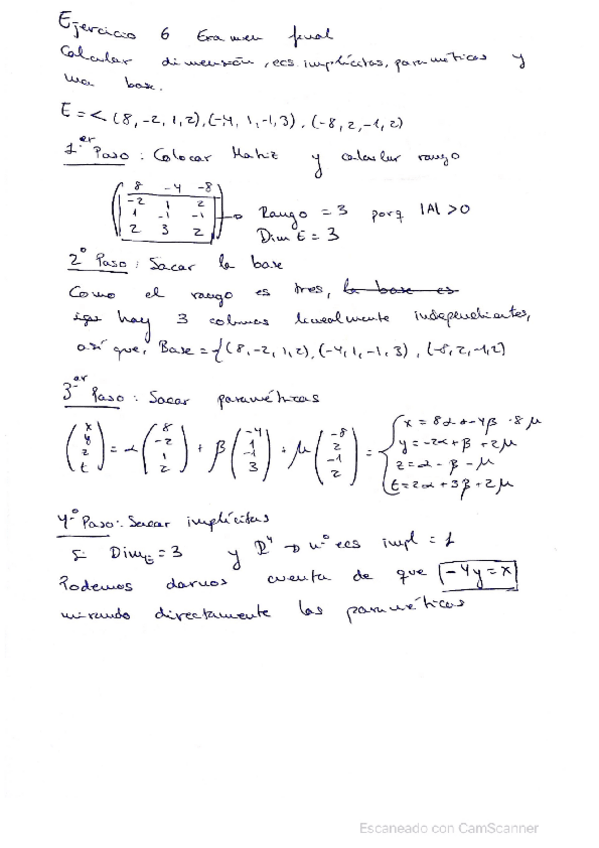 Ejercicio 6 Examen final
Calcular dimensión, ecs implícitas, paraméticas y
una base.
E = < (8, -2, 1, 2), (-4, 1, -1, 3), (-8, 2, -1, 2)
1.er Paso : Colocar Matriz y calcular rango
8 -4 -8
-2 1 2
1 -1 -1 → Rango = 3 porq |A| > 0
2 3 2 Dim E = 3
2º Paso : Sacar la base
Como el rango es tres, la base es
hay 3 columnas linealmente independientes,
así que, Base = {(8, -2, 1, 2), (-4, 1, -1, 3), (-8, 2, -1, 2)
3.er Paso : Sacar paramétricas
(x y z t) = α (8 -2 1 2) + β (-4 1 -1 3) + μ (-8 2 -1 2) = { x = 8α + -4β -8μ
y = -2α + β + 2μ
z = α - β - μ
t = 2α + 3β + 2μ
4º Paso : Sacar implícitas
Si DimE = 3 y R⁴ → nº ecs impl = 1
Podemos darnos cuenta de que -4y = x
mirando directamente las paraméticas
Escaneado con CamScanner